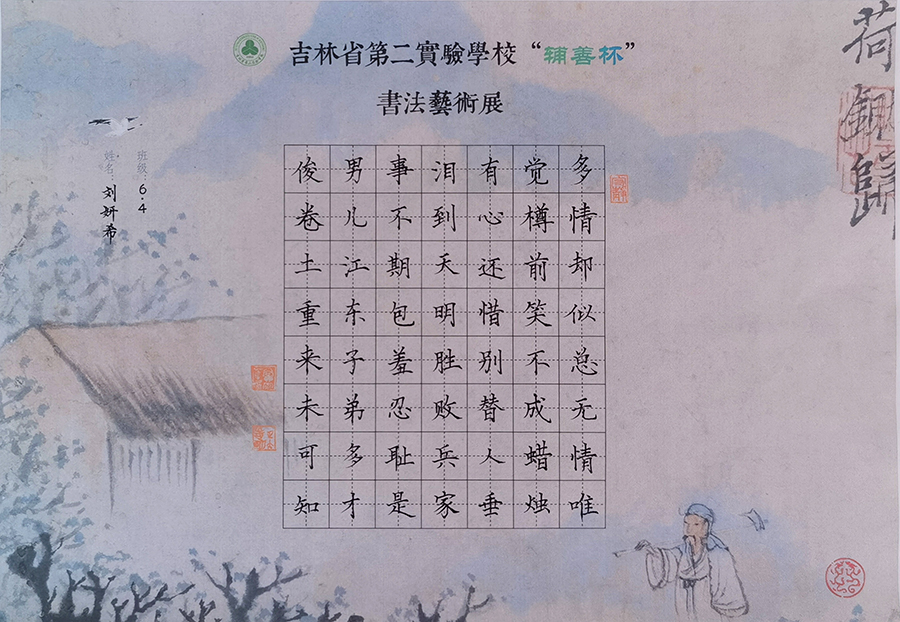 吉林省第二實驗學校“辅善杯”
書法藝術展
多情却似总无情唯
觉樽前笑不成蜡烛
有心还惜别替人垂
泪到天明胜败兵家
事不期包羞忍耻是
男儿江东子弟多才
俊卷土重来未可知
班级：6.4
姓名：刘妍希
荷鉏歸